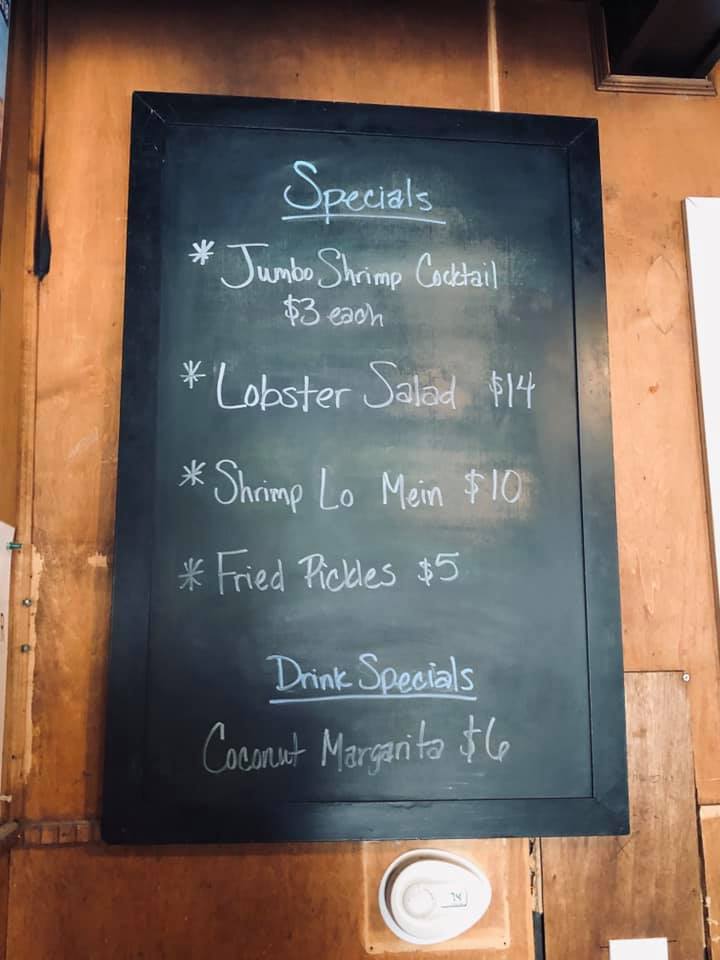 Specials
* Jumbo Shrimp Cocktail
$3 each
* Lobster Salad $14
* Shrimp Lo Mein $10
* Fried Pickles $5
Drink Specials
Coconut Margarita $6
74